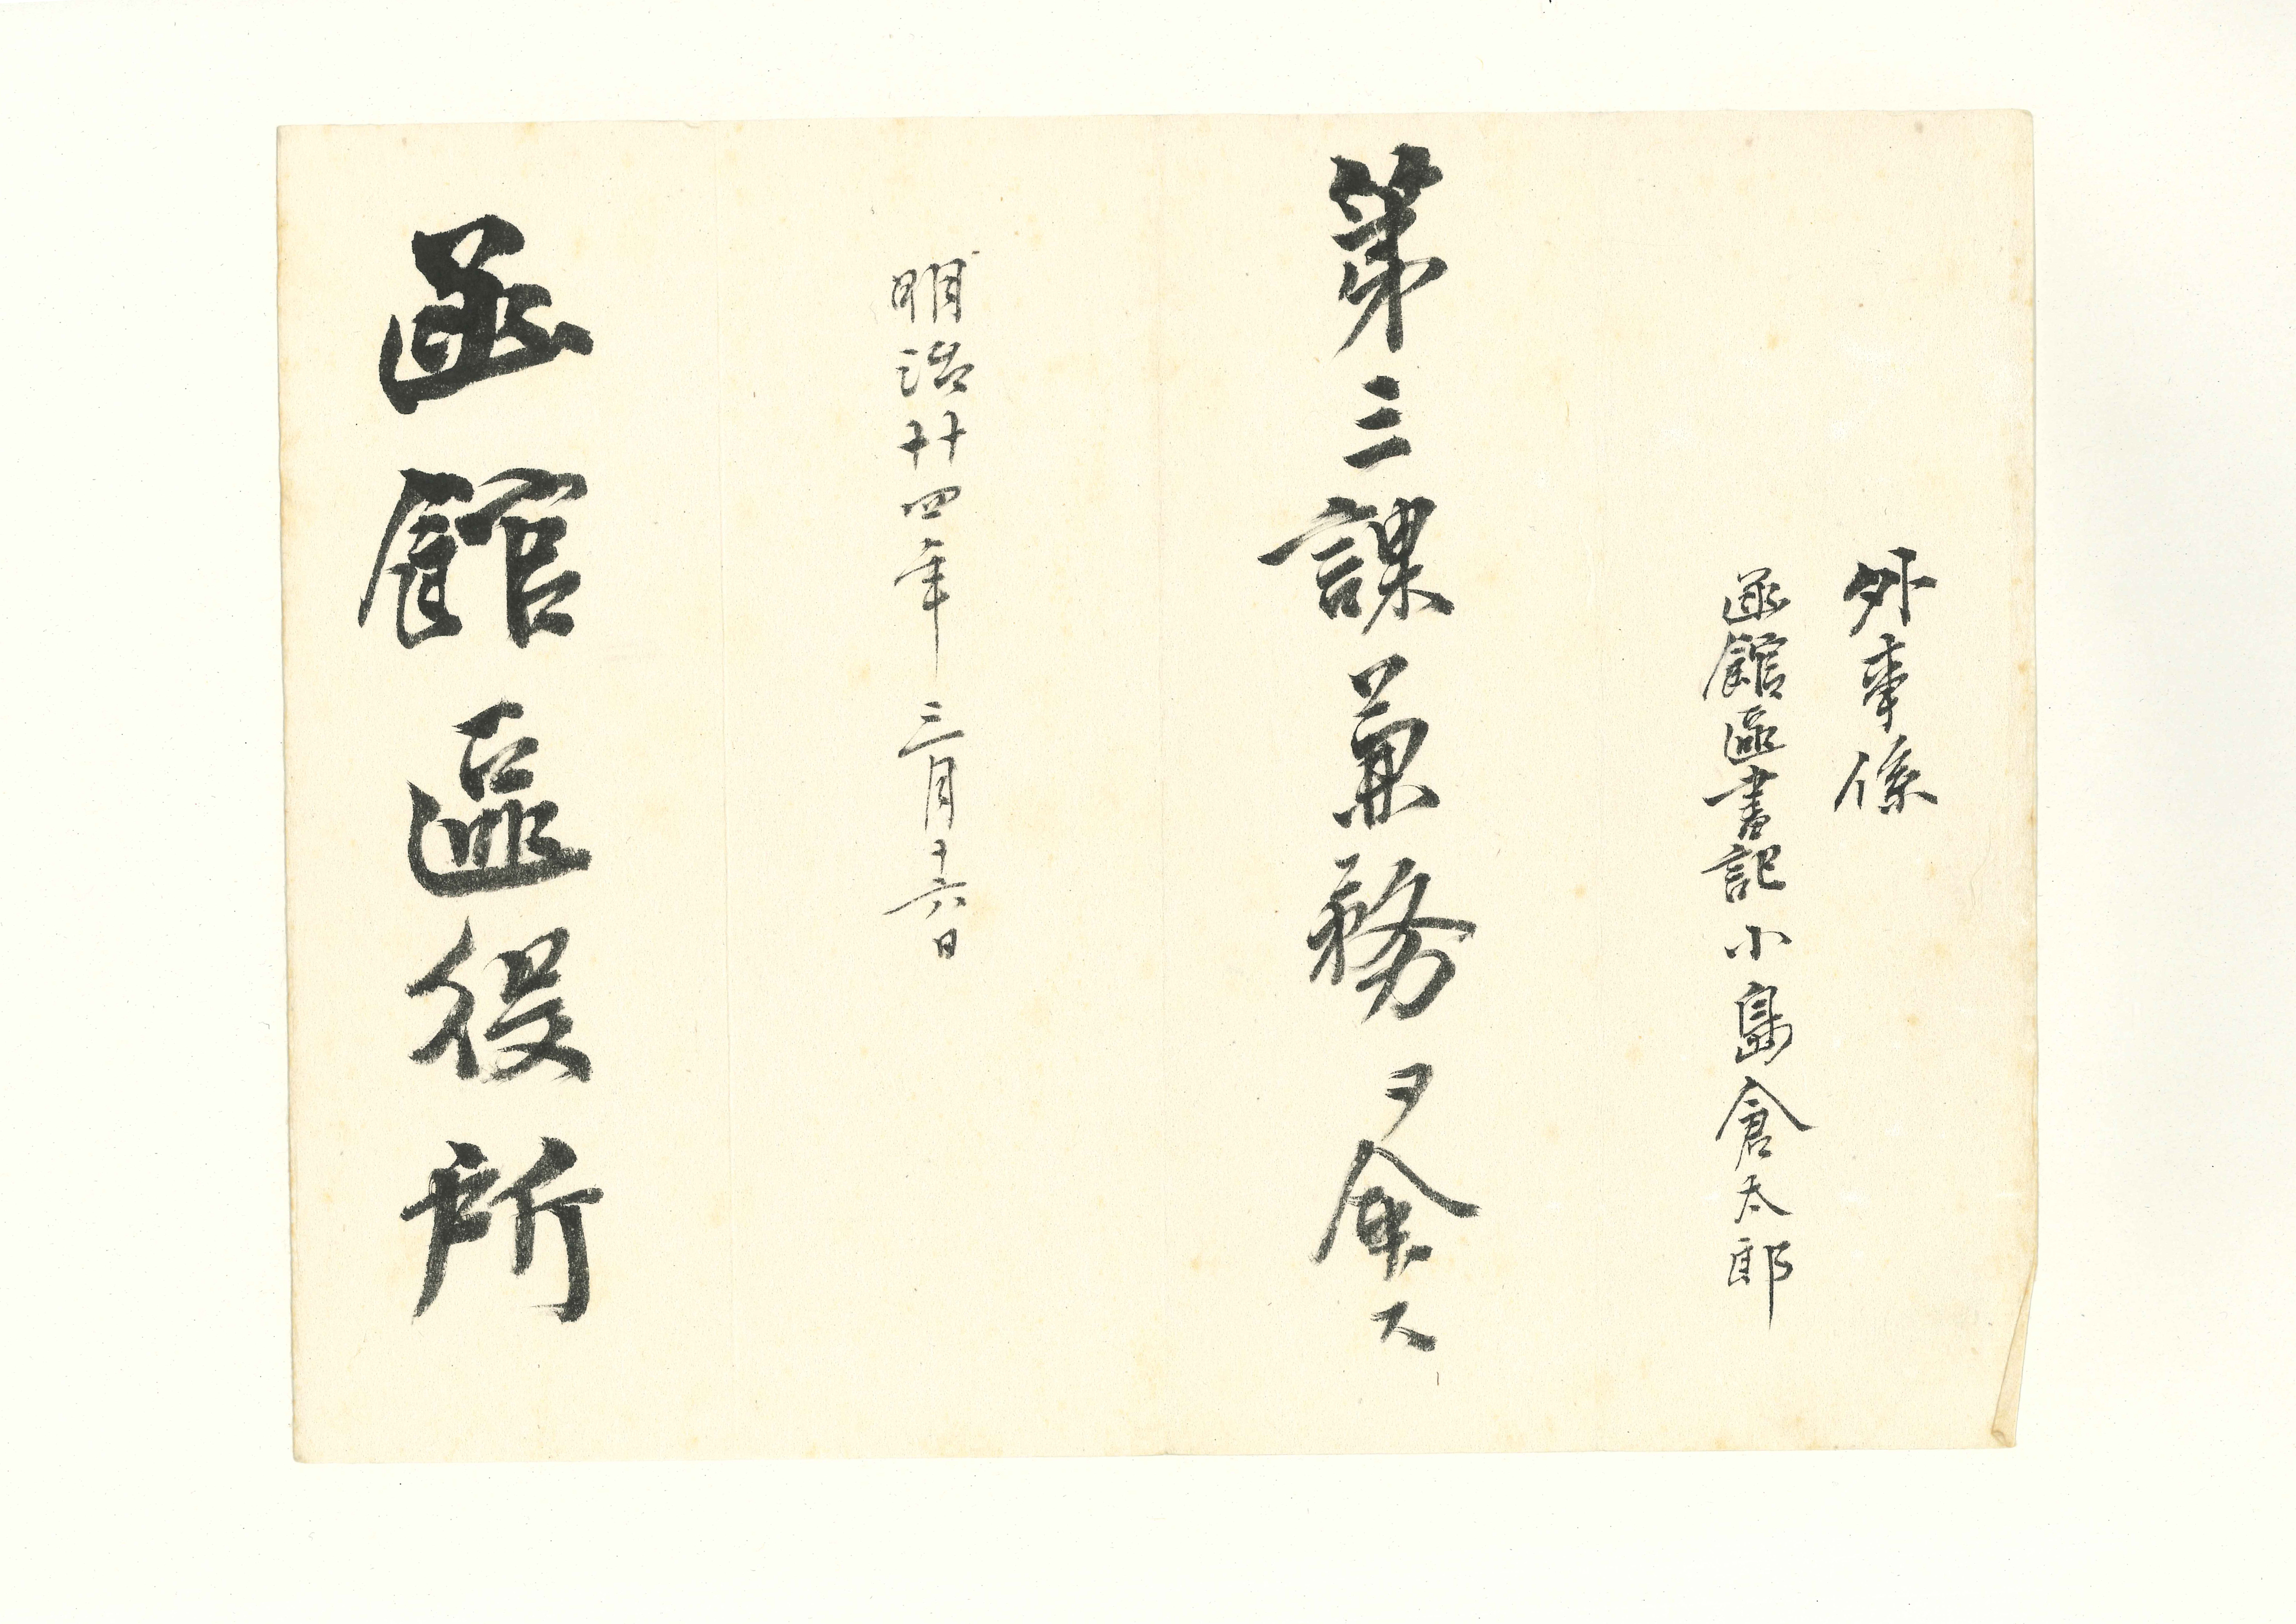 外事係
函館區書記小島倉太郎
第三課兼務ヲ命ス
明治廿四年三月十六日
函館區役所